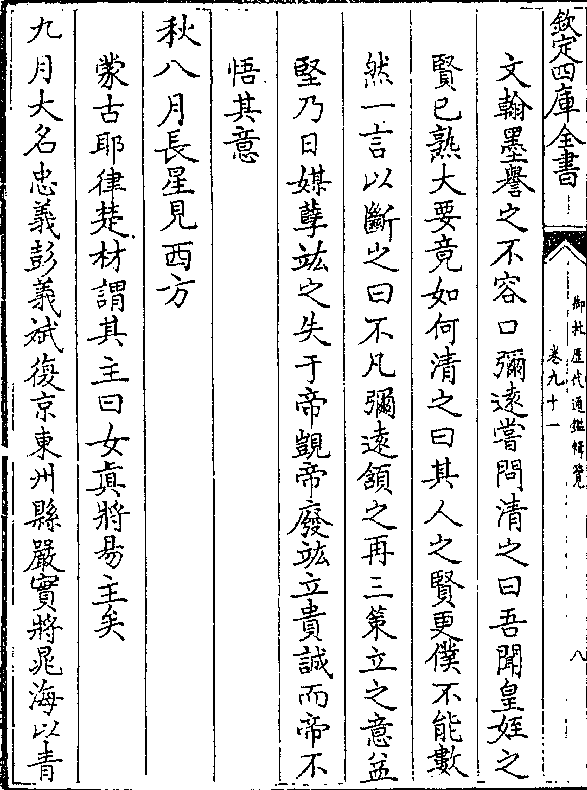 欽定四庫全書
御批歷代通鑑輯覽
卷九十一
八
文翰墨譽之不容口彌遠嘗問清之曰吾聞皇姪之
賢已熟大要竟如何清之曰其人之賢更僕不能數
然一言以斷之曰不凡彌遠頷之再三策立之意益
堅乃日媒孽竑之失于帝覬帝廢竑立貴誠而帝不
悟其意
秋八月長星見西方
蒙古耶律楚材謂其主曰女真將易主矣
九月大名忠義彭義斌復京東州縣嚴實將晁海以青